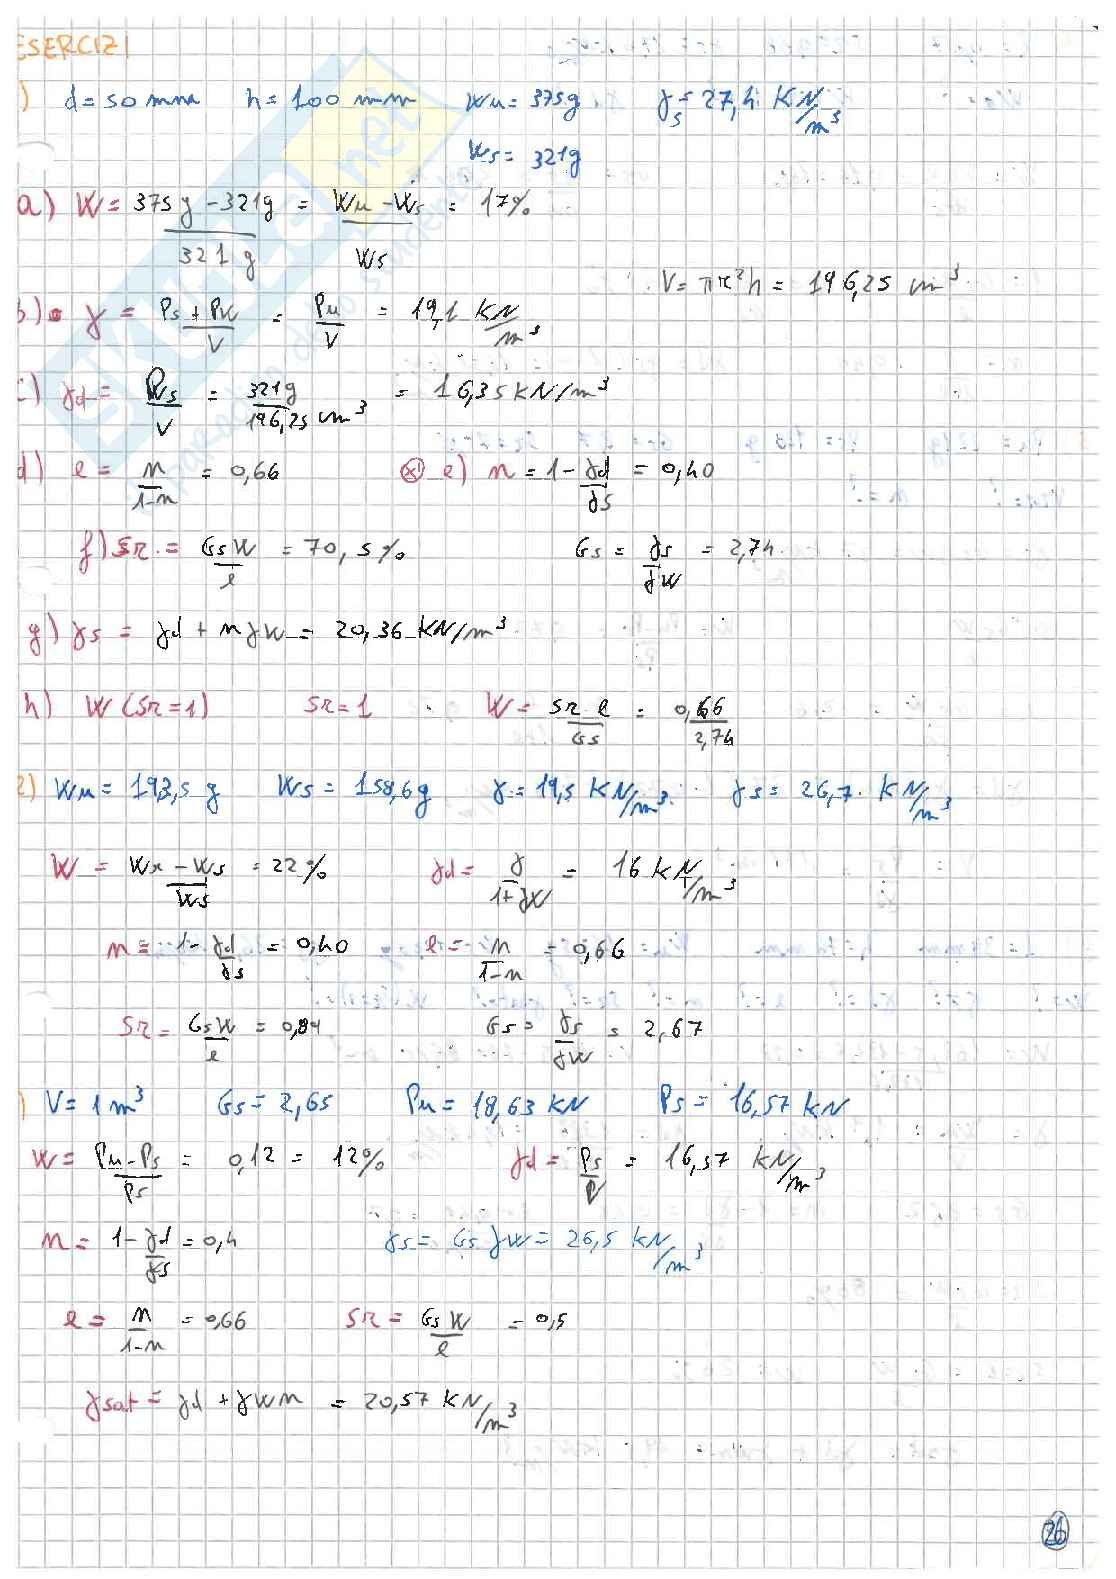 ESERCIZI
) d = 50 mm h = 100 mm Wu = 375g γs = 27,4 KN/m³
Ws = 321g
a) W = 375g - 321g / 321 g = Wu - Ws / Ws = 17%
V = πr²h = 196,25 cm³
b) γ = Ps + Pw / V = Pu / V = 19,1 KN/m³
c) γd = Ws / V = 321g / 196,25 cm³ = 16,35 KN/m³
d) e = n / 1-n = 0,66 e) n = 1 - γd / γs = 0,40
f) Sr = Gs W / e = 70,5% Gs = γs / γw = 2,74
g) γs = γd + n γw = 20,36 KN/m³
h) W (Sr = 1) Sr = 1 W = Sr e / Gs = 0,66 / 2,74
2) Wu = 193,5 g Ws = 158,6g γ = 19,5 KN/m³ γs = 26,7 KN/m³
W = Wu - Ws / Ws = 22% γd = γ / 1+γW = 16 KN/m³
n = 1 - γd / γs = 0,40 e = n / 1-n = 0,66
Sr = Gs W / e = 0,84 Gs = γs / γw = 2,67
) V = 1 m³ Gs = 2,65 Pu = 18,63 KN Ps = 16,57 KN
W = Pu - Ps / Ps = 0,12 = 12% γd = Ps / V = 16,57 KN/m³
n = 1 - γd / γs = 0,4 γs = Gs γw = 26,5 KN/m³
e = n / 1-n = 0,66 Sr = Gs W / e = 0,5
γsat = γd + γw n = 20,57 KN/m³
26